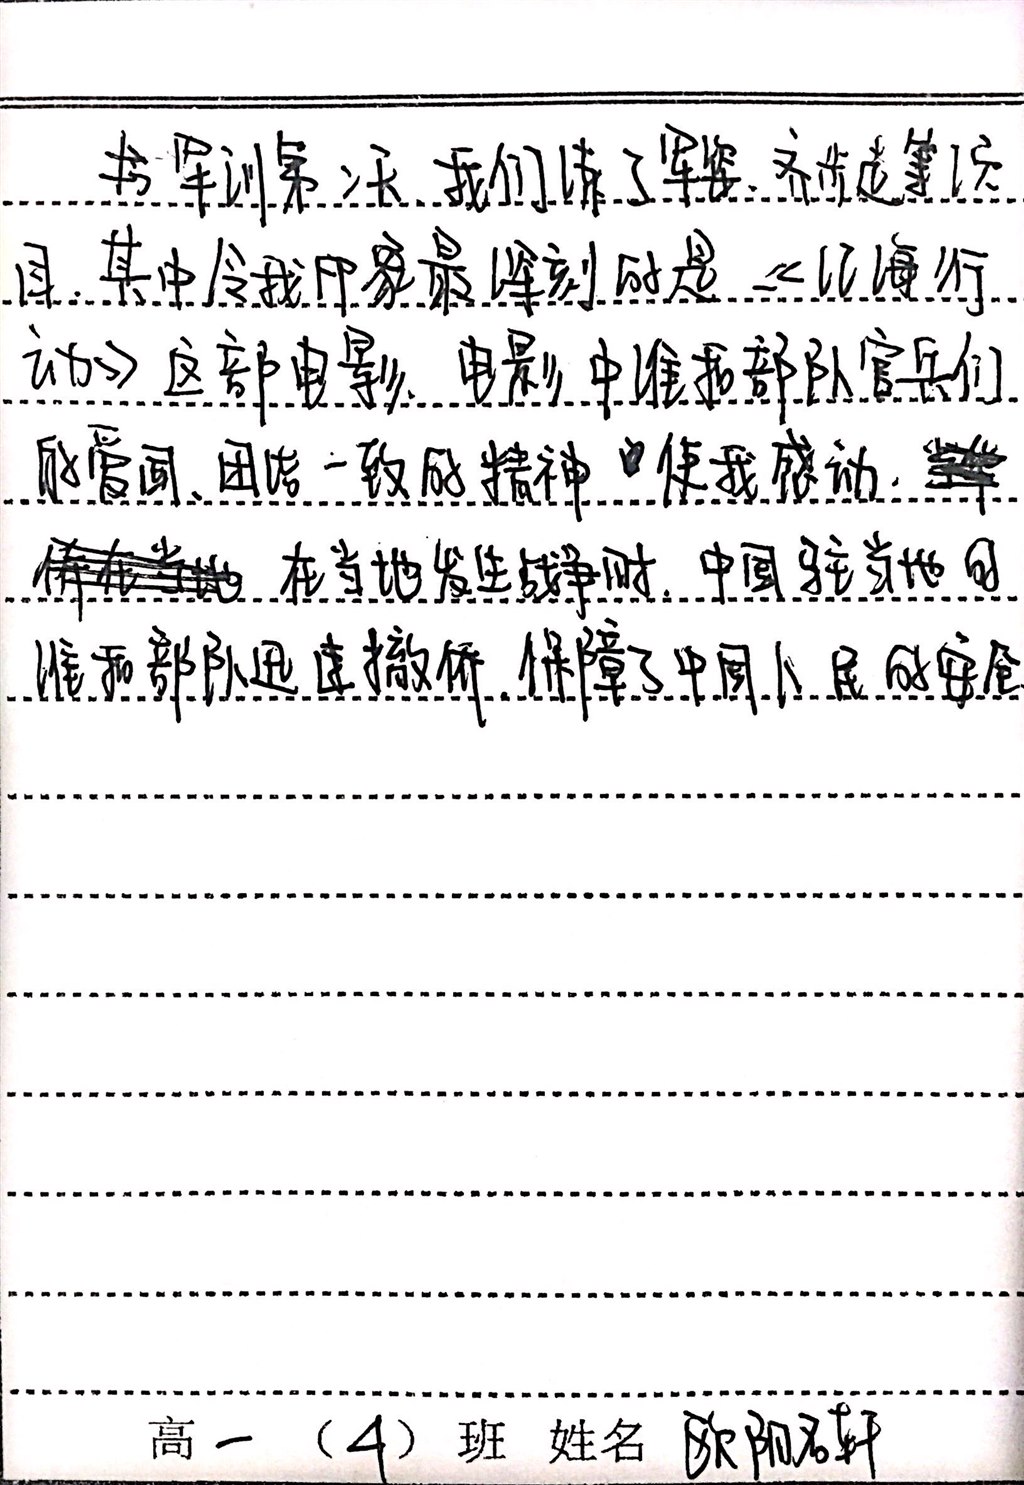 军训第二天，我们练了军姿、齐步走等项
目，其中令我印象最深刻的是《红海行
动》这部电影，电影中维和部队官兵们
的爱国、团结一致的精神使我感动，
在当地发生战争时，中国驻当地的
维和部队迅速撤侨，保障了中国人民的安全
高一（4）班 姓名 欧阳君轩